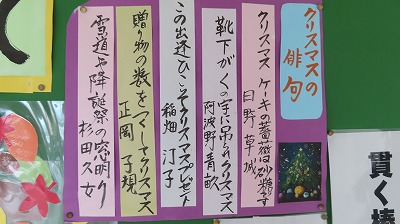 クリスマスの俳句
クリスマスケーキの薔薇は砂糖です
日野草城
靴下がくの字に吊られクリスマス
阿波野青畝
この出逢ひこそクリスマスプレゼント
稲畑汀子
贈り物の数を尽してクリスマス
正岡子規
雪道や降誕祭の窓明り
杉田久女
貫く棒